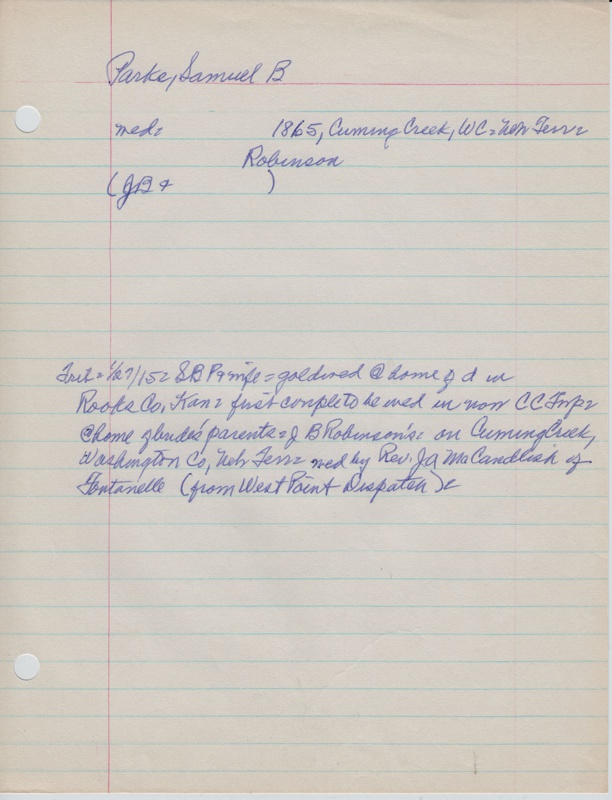 Parke, Samuel B
med= 1865, Cuming Creek, WC= Neb Terr=
Robinson
(JB + )
Trib= 1/27/15= SB P + wife = gold wed @ home of d in
Rooks Co, Kan= first couple to be wed in now CC Twp=
@ home of brides' parents= J B Robinson's= on Cuming Creek,
Washington Co, Neb Terr= wed by Rev. JA McCandlish of
Fontanelle (from West Point Dispatch)